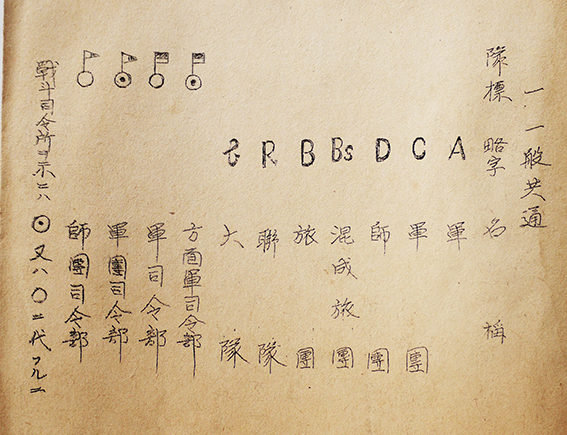 一 一般共通
隊標 略字 名稱
A 軍
C 軍團
D 師團
Bs 混成旅團
B 旅團
R 聯隊
大隊
方面軍司令部
軍司令部
軍團司令部
師團司令部
戰斗司令所ヲ示ニハ ⊙ 又ハ ○ニ代フルニ